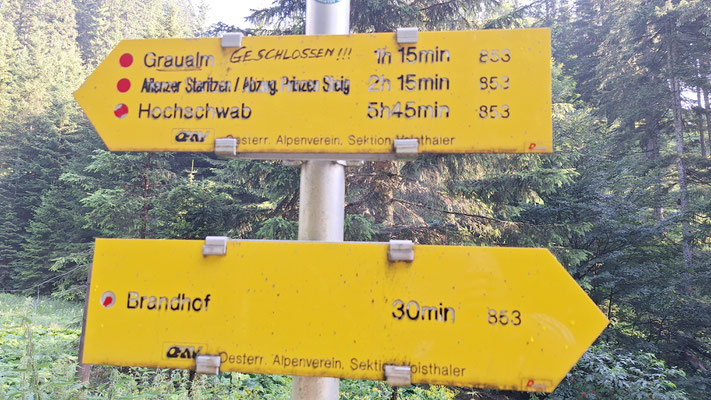 Graualm GESCHLOSSEN!!! 1h 15min 853
Aflenzer Staritzen / Abzwg. Prinzen Steig 2h 15min 853
Hochschwab 5h45min 853
OEAV Oesterr. Alpenverein. Sektion Voisthaler
Brandhof 30min 853
OEAV Oesterr. Alpenverein. Sektion Voisthaler